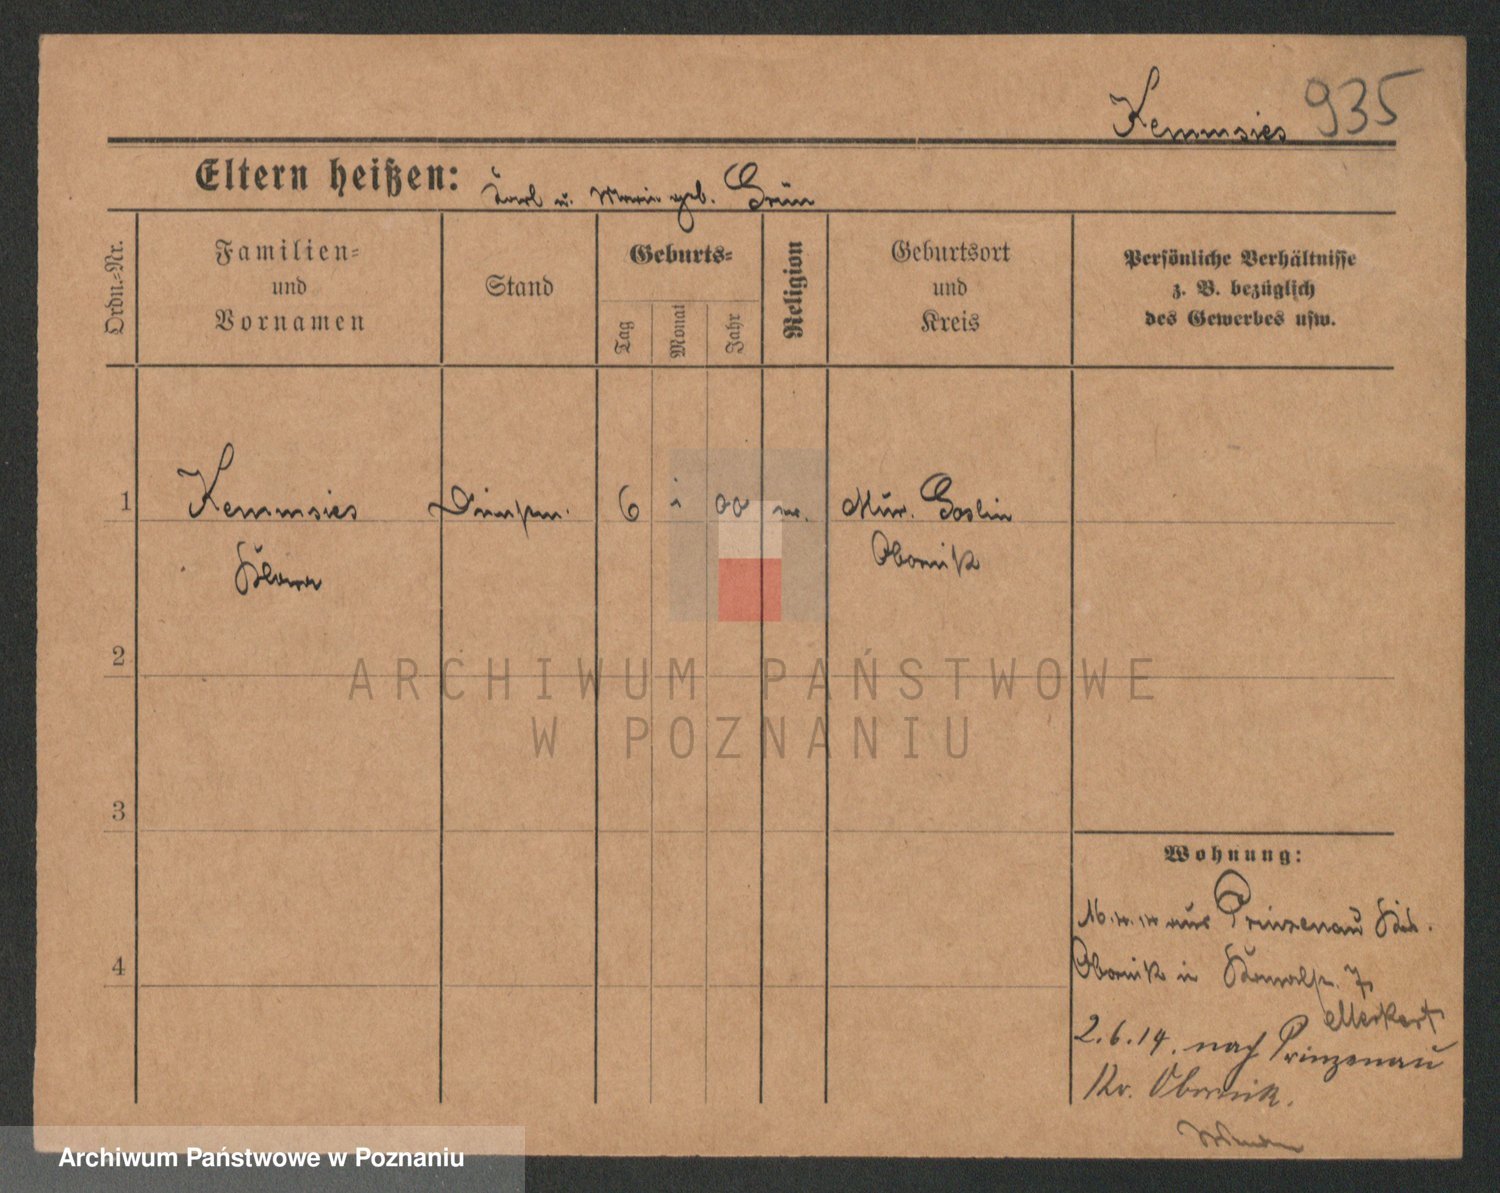 Kemmsies 935
Eltern heißen: Karl u. Marie geb. Grün
Ordn.=Nr.
Familien=
und
Vornamen
Stand
Geburts=
Tag
Monat
Jahr
Religion
Geburtsort
und
Kreis
Persönliche Verhältnisse
z. B. bezüglich
des Gewerbes usw.
1 Kemmsies 6 00 Mur. Goslin
Klara Obornik
2
ARCHIWUM PAŃSTWOWE
W POZNANIU
3
Wohnung:
4
aus Prinzenau
Obornik in 7
Merkert
2.6.14. nach Prinzenau
Kr. Obornik.
Archiwum Państwowe w Poznaniu